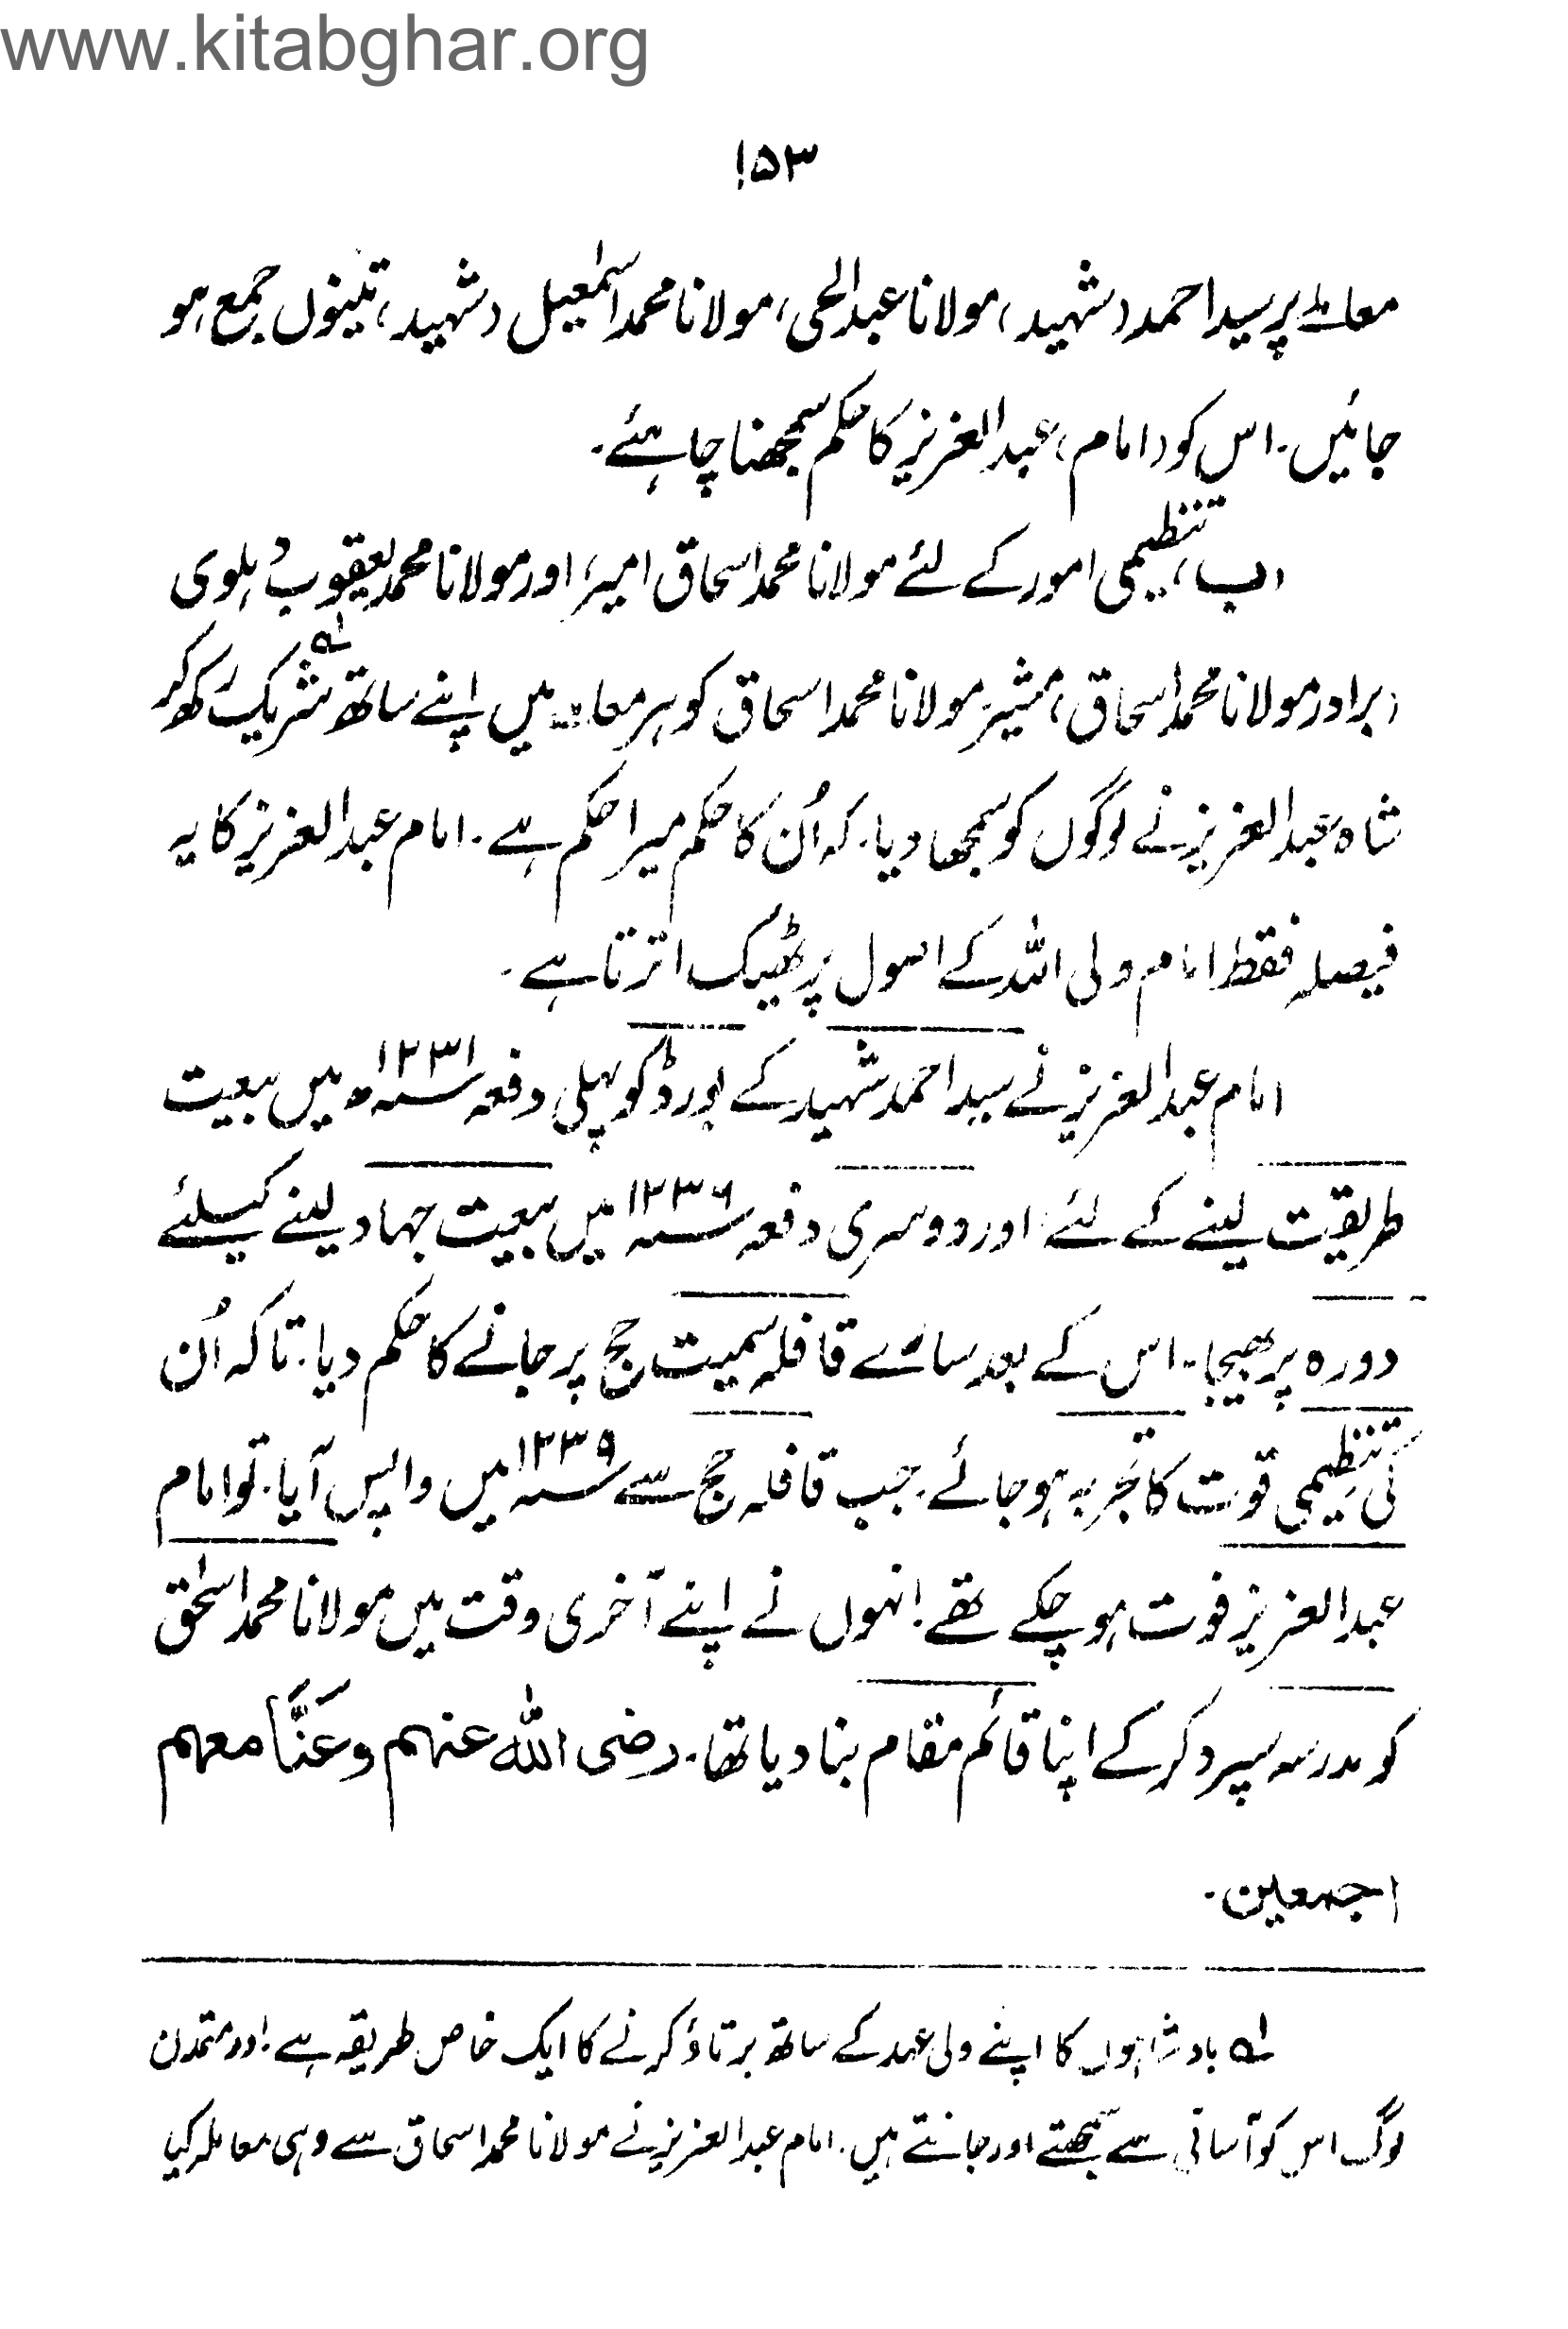 www.kitabghar.org
۱۵۳
معاملے پر سید احمد (شہید)، مولانا عبدالحی، مولانا محمد اسمٰعیل (شہید)، تینوں جمع ہو
جائیں۔ اس کو (امام) عبدالعزیز کا حکم سمجھنا چاہئے۔
(ب) تنظیمی امور کے لئے مولانا محمد اسحاق امیر، اور مولانا محمد یعقوب دہلوی
(برادر مولانا محمد اسحاق) مشیر، مولانا محمد اسحاق کو ہر معاملہ میں اپنے ساتھ شریک رکھ کر ؎۱
شاہ عبدالعزیز نے لوگوں کو سمجھا دیا۔ کہ اُن کا حکم میرا حکم ہے۔ امام عبدالعزیز کا یہ
فیصلہ فقط امام ولی اللہ کے اصول پر ٹھیک اترتا ہے۔
امام عبدالعزیز نے سید احمد شہید کے بورڈ کو پہلی دفعہ ۱۲۳۱ھ میں بیعت
طریقیت لینے کے لئے اور دوسری دفعہ ۱۲۳۶؁ میں بیعت جہاد لینے کیلئے
دورہ پر بھیجا۔ اس کے بعد سارے قافلہ سمیت حج پر جانے کا حکم دیا۔ تاکہ اُن
کی تنظیمی قوت کا تجربہ ہو جائے۔ جب قافلہ حج سے ۱۲۳۹؁ میں واپس آیا۔ تو امام
عبدالعزیز فوت ہو چکے تھے۔ انہوں نے اپنے آخری وقت میں مولانا محمد اسحٰق
کو مدرسہ سپرد کر کے اپنا قائم مقام بنا دیا تھا۔ رضی اللہ عنہم وعَنَّا معہم
اجمعین۔
؎۱ بادشاہوں کا اپنے ولی عہد کے ساتھ برتاؤ کرنے کا ایک خاص طریقہ ہے۔ اور متمدن
لوگ اس کو آسانی سے سمجھتے اور جانتے ہیں۔ امام عبدالعزیز نے مولانا محمد اسحاق سے وہی معاملہ کیا